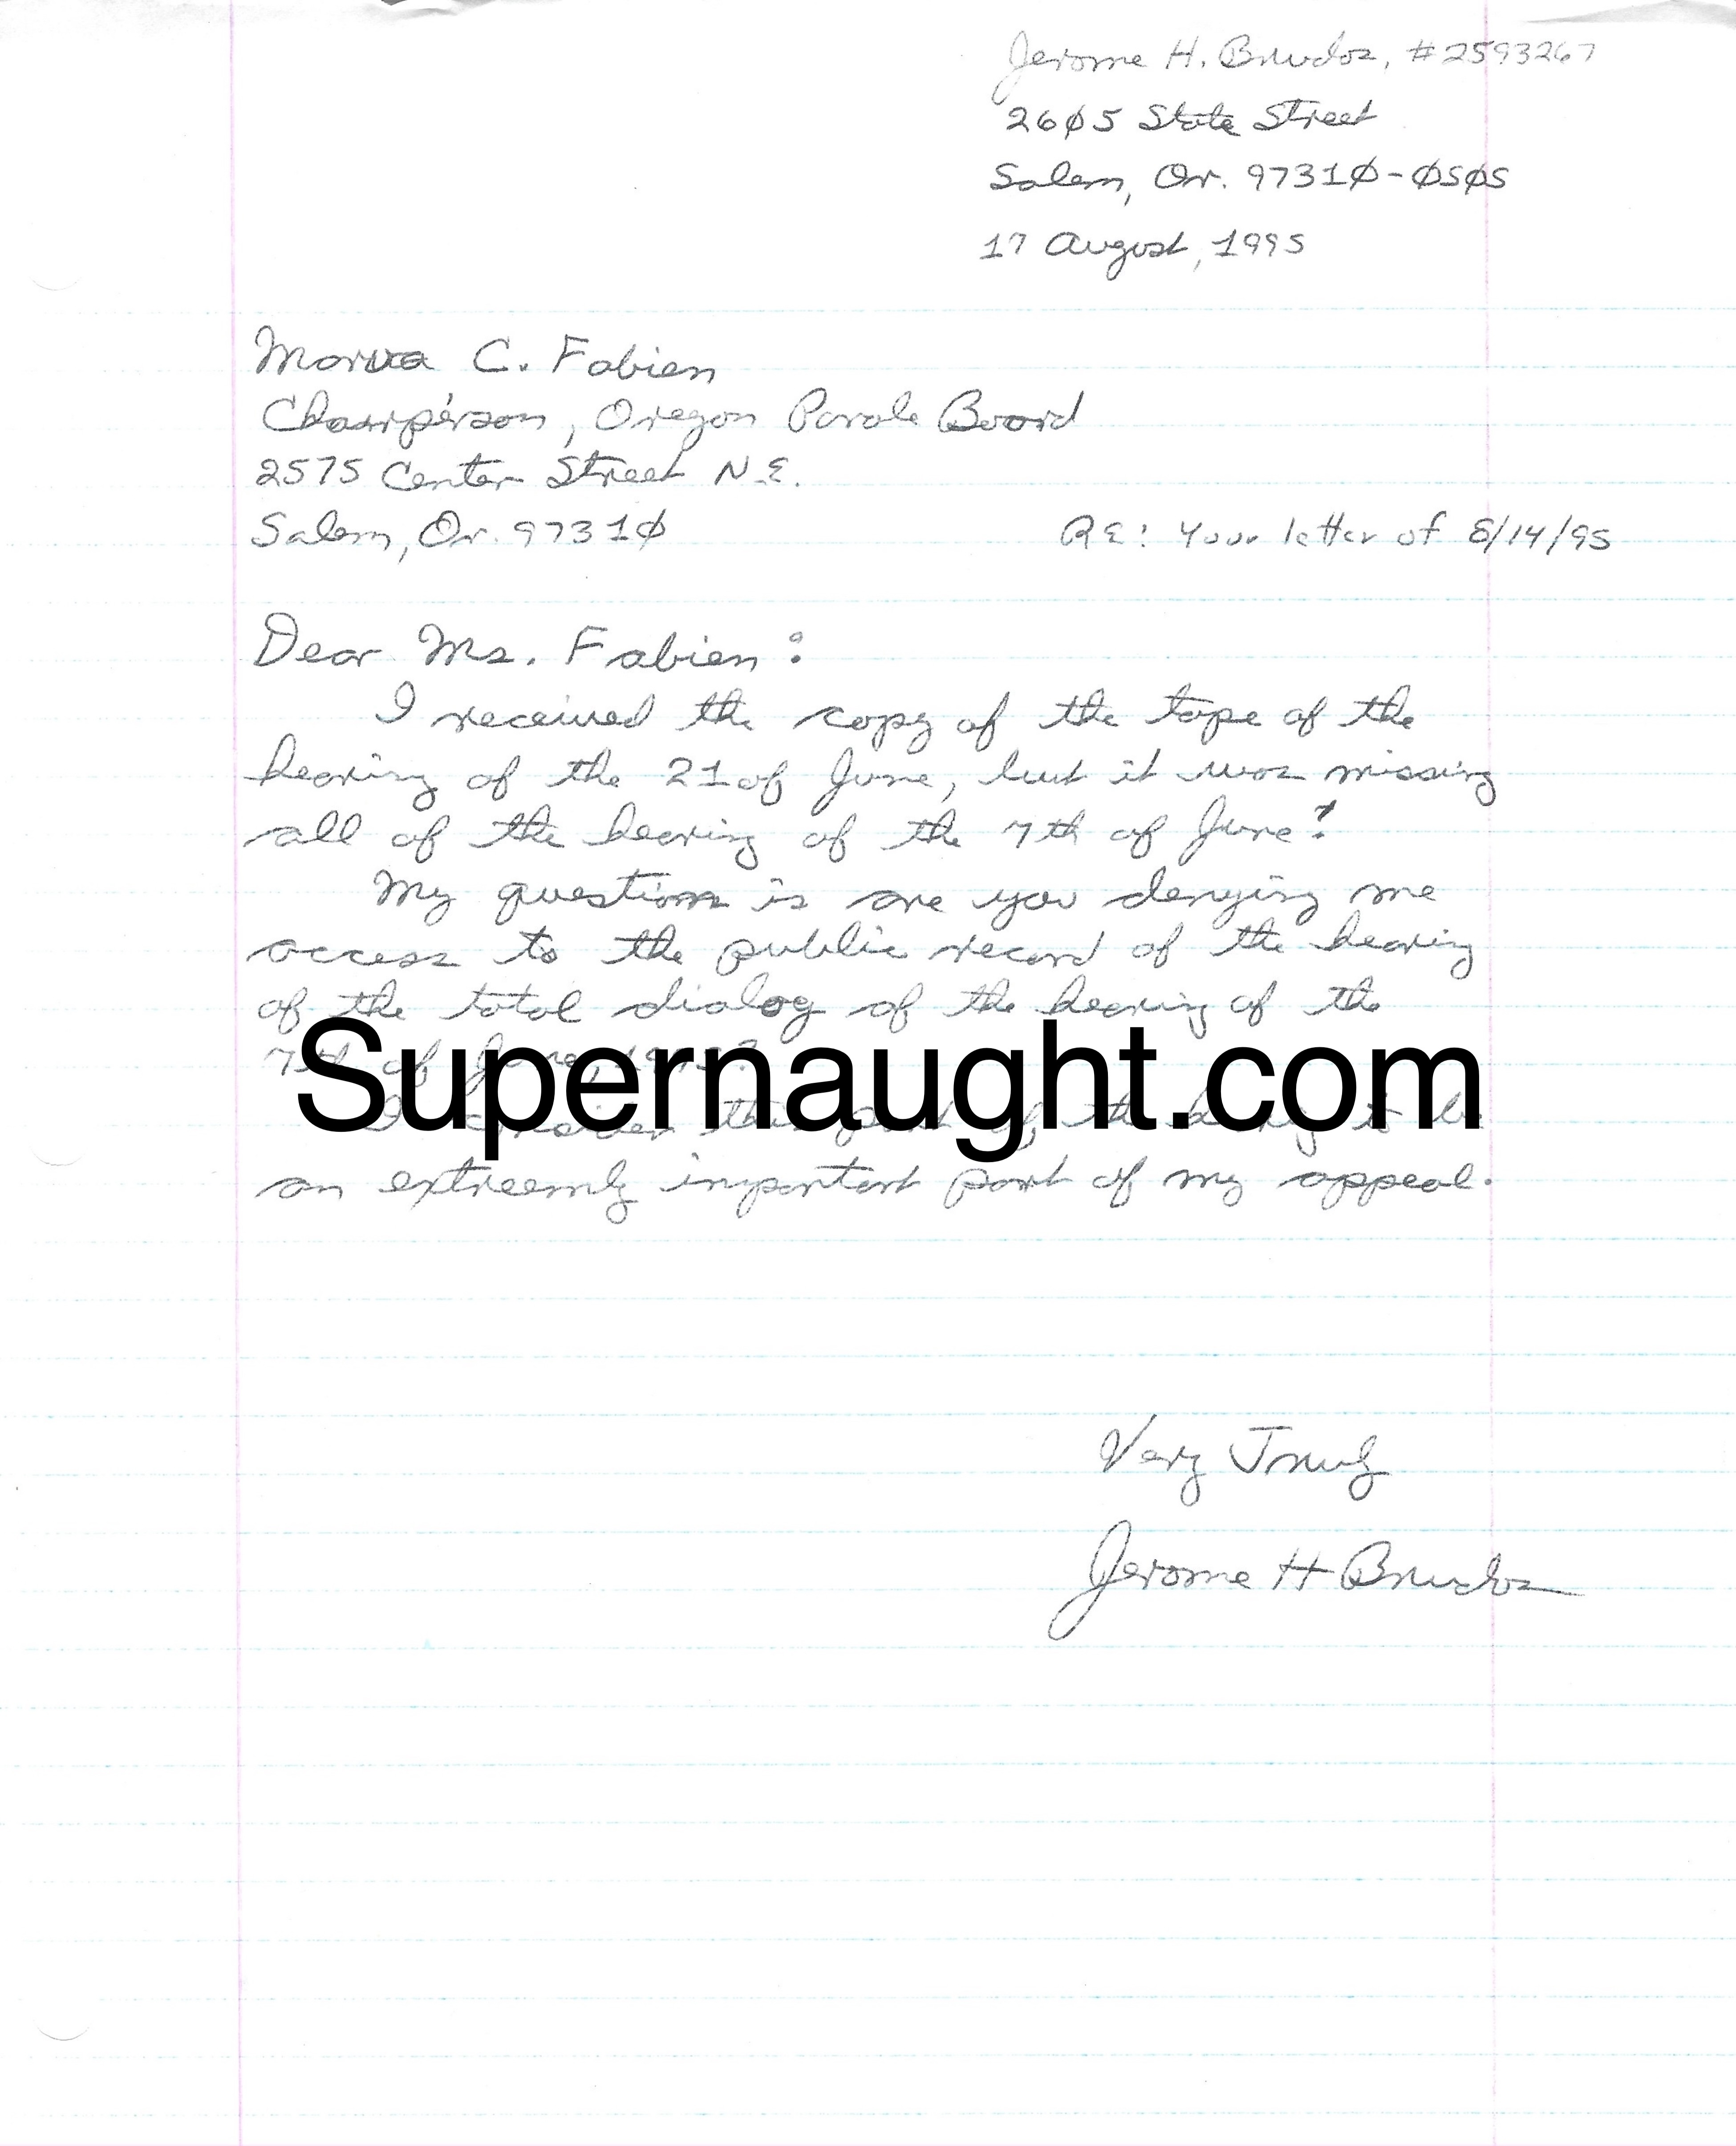 Jerome H. Brudos, #2593267
26Ø5 State Street
Salem, Or. 9731Ø-Ø5Ø5
17 August, 1995
Marva C. Fabien
Chairperson, Oregon Parole Board
2575 Center Street N.E.
Salem, Or. 9731Ø
RE: Your letter of 8/14/95
Dear Ms. Fabien:
I received the copy of the tape of the
hearing of the 21 of June, but it was missing
all of the hearing of the 7th of June!
My question is are you denying me
access to the public record of the hearing
of the total dialog of the hearing of the
7th of June, 1995?
Supernaught.com
I consider this part of, the hearing to be
an extreemly important part of my appeal.
Very Truly
Jerome H Brudos